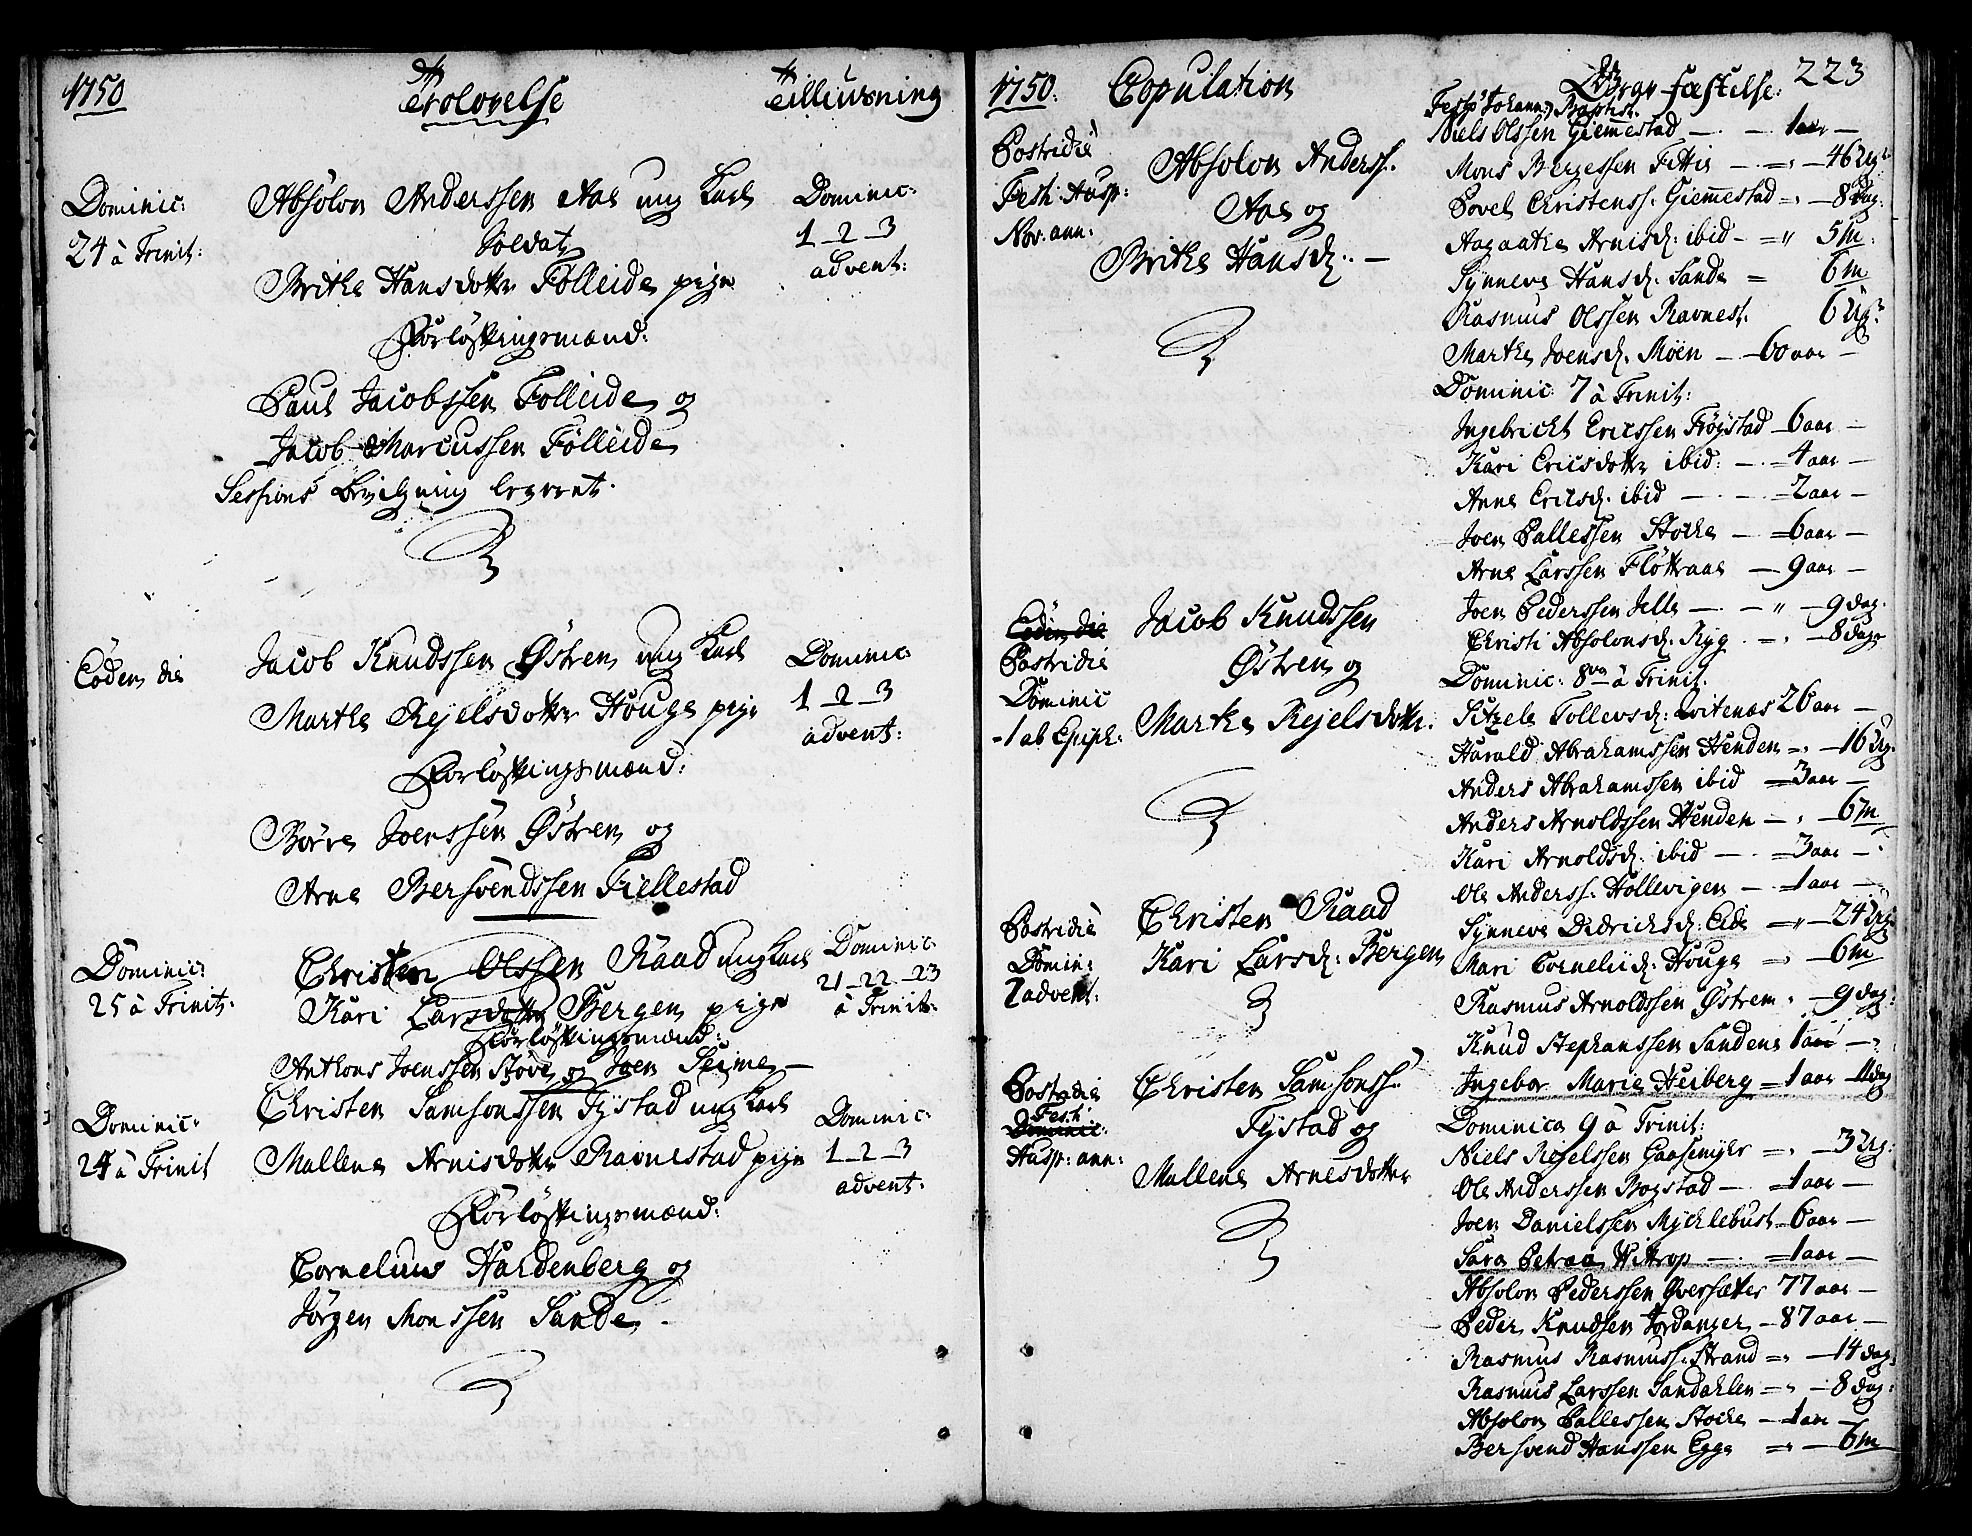 1750 Trolovelse Tillusning
Dominic: 24 à Trinit:
Absolon Anderssen Aae ung Karl
Soldat
Brithe Hansdotter Følleide pige
Forløftingsmænd:
Paul Jacobssen Følleide og
Jacob Marcussen Følleide
Sessions leveret.
Dominic:
1_2_3
advent:
Eodem die
Jacob Knudssen Østrem ung Karl
Marthe Kejelsdotter Houge pige
Forløftingsmænd:
Børre Joenssen Østrem og
Arne Bersvendssen Fiellestad
Dominic:
1_2_3
advent:
Dominic:
25 à Trinit:
Christen Olssen Raad ung Karl
Kari Larsdotter Bergem pige
Forløftingsmænd:
Anthons Joenssen Støve og Joen Seime
Dominic:
21_22_23
à Trinit:
Dominic:
24 à Trinit
Christen Samsonssen Tystad ung Karl
Mallene Arnisdotter Ravnestad pige
Forløftingsmænd:
Cornelius Hardenberg og
Jørgen Monssen Sande
Dominic:
1_2_3
advent:
1750. Copulation
Postridie
Festi Husp:
Nov: ann:
Absolon Anderss:
Aae og
Brithe Hansd:
Eodem die
Postridie
Dominic
1 ab Epiph:
Jacob Knudssen
Østrem og
Marthe Kejelsdotter.
Postridie
Domin:
2 advent:
Christen Raad
Kari Larsd: Bergem
Postridie
Festi
Dominic:
Husp: ann:
Christen Samsonss:
Tystad og
Mallene Arnesdotter
223
Festo Johann: Baptist.
Niels Olssen Giemmestad — 1 aar
Mons Børgessen Fettie — 46 Ug:
Povel Christenss. Giemmestad — 8 dag:
Aagaathe Arnisd: ibid — 5 m:
Synneve Hansd: Sande = 6 m
Rasmus Olssen Ravnest. 6 Ug:
Marthe Joensd. Møen — 60 aar —
Dominic: 7 à Trinit:
Ingebricht Ericssen Frøystad — 6 aar —
Kari Ericsdotter ibid: — 4 aar —
Anne Ericsd. ibid — 2 aar —
Joen Pallessen Stocke — 6 aar —
Arne Larssen Fløttraae — 9 aar —
Joen Pederssen Jelle — 9 dag.
Christi Absolonsd. Ryg — 8 dage
Dominic: 8va à Trinit.
Sitzele Tollevsd: Qvitenæs 26 aar —
Harald Abrahamssen Henden — 16 Ug.
Anders Abrahamssen ibid = 3 aar —
Anders Arnoldssen Henden — 6 m
Kari Arnoldsd. ibid — 3 aar —
Ole Anderss. Hollevigen — 1 aar —
Synneve Didrichsd: Eide — 24 Ug:
Mari Corneliid: Houge — 6 m
Rasmus Arnoldssen Østrem — 9 dag:
Knud Stephanssen Sandene 1 aar —
Ingebor Marie Heiberg = 1 aar 11 dag
Dominica 9 à Trinit:
Niels Kejelssen Gaasemyr — 3 Ug:
Ole Anderssen Bogstad — 1 aar —
Joen Danielssen Mychlebust — 6 aar —
Sara Petraa Wittrop — 1 aar —
Absolon Pederssen Qversætter 77 aar —
Peder Knudsen Jordanger — 87 aar —
Rasmus Rasmuss. Strand = 14 dag:
Rasmus Larssen Sandahlen = 8 dag:
Absolon Pallessen Stocke — 1 aar —
Bersvend Hanssen Egge = 6 m